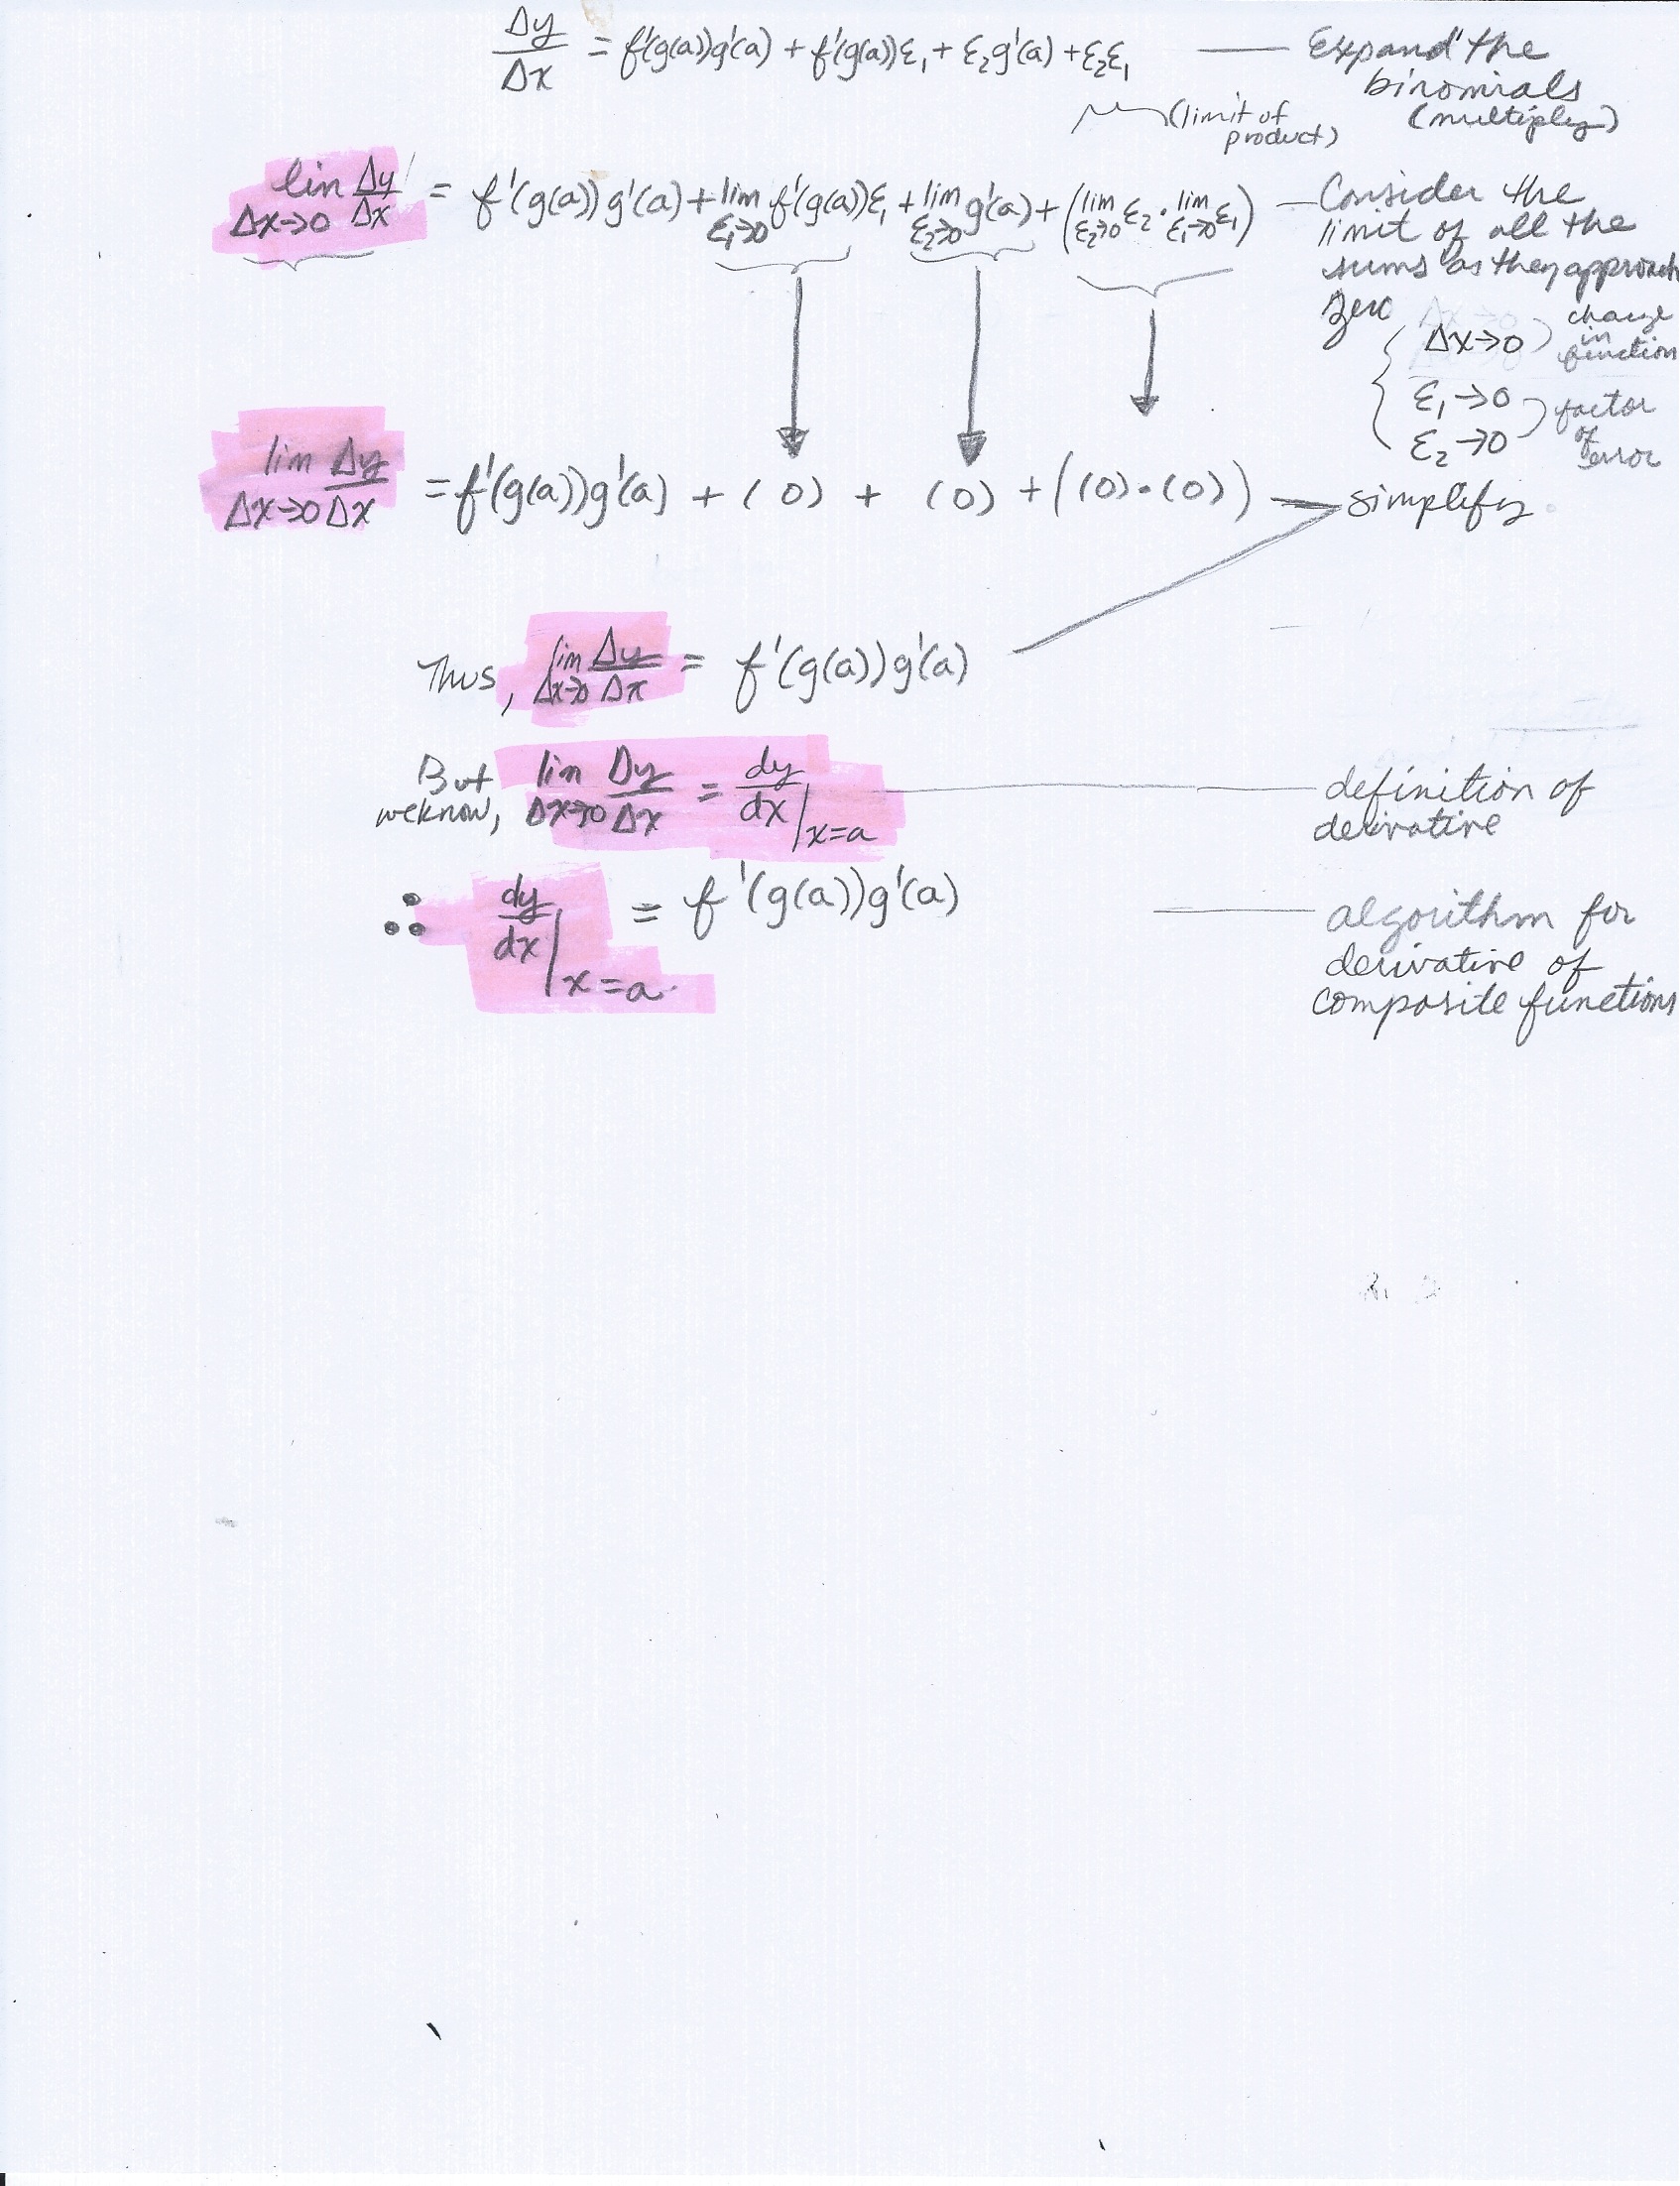 Δy/Δx = f'(g(a))g'(a) + f'(g(a))ε₁ + ε₂g'(a) + ε₂ε₁ — Expand the
binomials
(multiply)
(limit of
product)
lim Δx→0 Δy/Δx = f'(g(a)) g'(a) + lim ε₁→0 f'(g(a))ε₁ + lim ε₂→0 g'(a) + (lim ε₂→0 ε₂ · lim ε₁→0 ε₁) — Consider the
limit of all the
sums as they approach
zero
Δx→0 change in function
ε₁→0
ε₂→0 factor of error
lim Δx→0 Δy/Δx = f'(g(a))g'(a) + (0) + (0) + ((0)·(0)) — simplify
Thus, lim Δx→0 Δy/Δx = f'(g(a))g'(a)
But we know, lim Δx→0 Δy/Δx = dy/dx |x=a — definition of
derivative
∴ dy/dx |x=a = f'(g(a))g'(a) — algorithm for
derivative of
composite functions